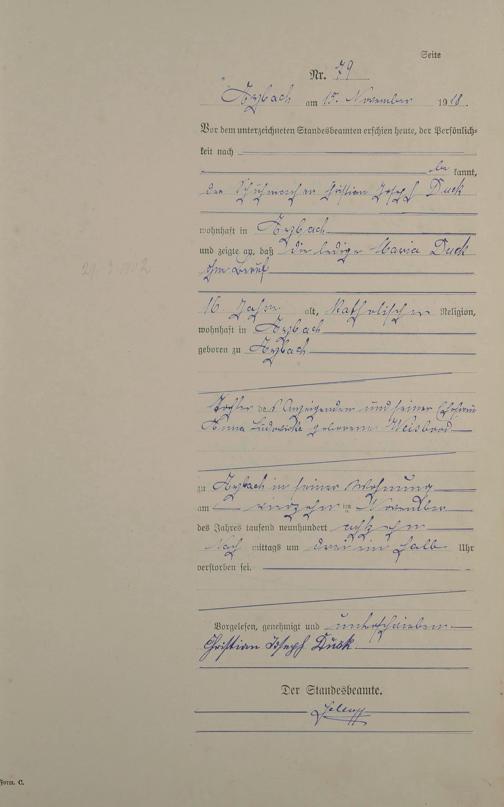 Seite
Nr. 79
am 15. November 1918.
Vor dem unterzeichneten Standesbeamten erschien heute, der Persönlich-
keit nach
be kannt,
der Schuhmacher Christian Joseph Duck
wohnhaft in
und zeigte an, daß die ledige Maria Duck
ohne Beruf
16 Jahre alt, katholischer Religion,
wohnhaft in
geboren zu
Tochter des Anzeigenden und seiner Ehefrau
Anna geborene
zu in seiner Wohnung
am vierzehn ten November
des Jahres tausend neunhundert achtzehn
Nach mittags um drei ein halb Uhr
verstorben sei.
Vorgelesen, genehmigt und unterschrieben
Christian Joseph Duck
Der Standesbeamte.
Form. C.